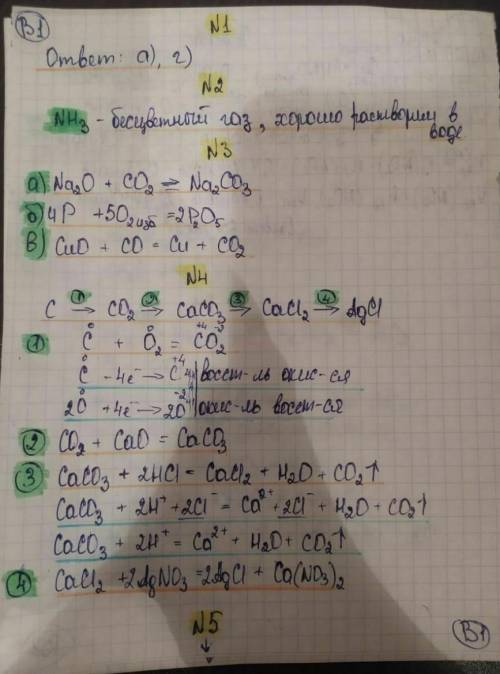 В1
N1
Ответ: а), г)
N2
NH₃ - бесцветный газ, хорошо растворим в
воде
N3
а) Na₂O + CO₂ = Na₂CO₃
б) 4P + 5O₂ изб = 2P₂O₅
в) CuO + CO = Cu + CO₂
N4
C →① CO₂ →② CaCO₃ →③ CaCl₂ →④ AgCl
① C⁰ + O₂⁰ = C⁺⁴O₂⁻²
C⁰ - 4e⁻ → C⁺⁴ | 4 | 1 | восст-ль окис-ся
2O⁰ + 4e⁻ → 2O⁻² | 4 | 1 | окис-ль восст-ся
② CO₂ + CaO = CaCO₃
③ CaCO₃ + 2HCl = CaCl₂ + H₂O + CO₂↑
CaCO₃ + 2H⁺ + 2Cl⁻ = Ca²⁺ + 2Cl⁻ + H₂O + CO₂↑
CaCO₃ + 2H⁺ = Ca²⁺ + H₂O + CO₂↑
④ CaCl₂ + 2AgNO₃ = 2AgCl + Ca(NO₃)₂
N5
↓
В1